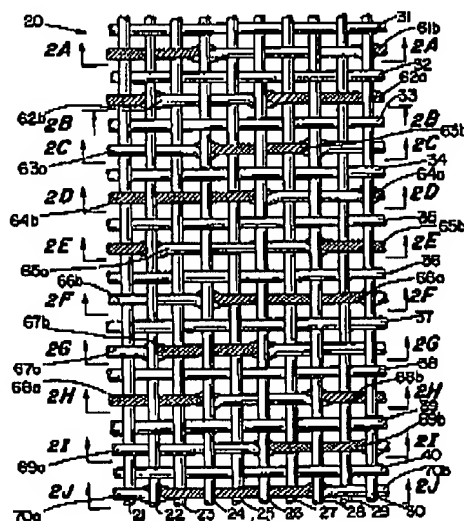 20
31
61b
2A 2A
32
62a
62b
33
2B 2B
63b
2C 2C
63a
34
64a
2D 2D
64b
35
2E 2E
65b
65a
36
66b 66a
2F 2F
37
67b
2G 2G
67a
38
68a 68b
2H 2H
39
69b
2I 2I
69a
40
70b
2J 2J
70a 21 22 23 24 25 26 27 28 29 30